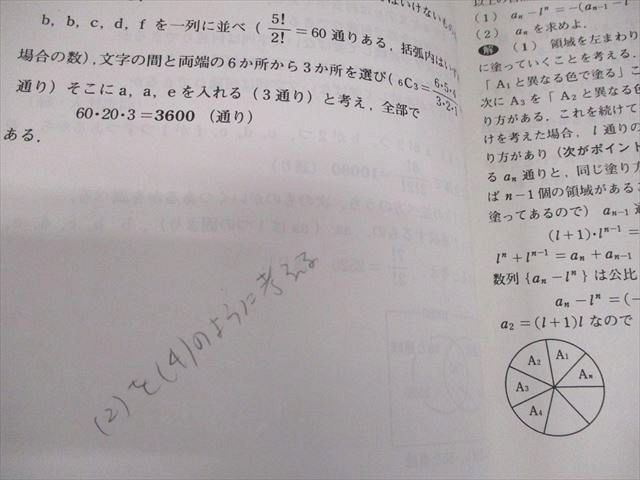 b, b, c, d, f を一列に並べ ( 5!/2! = 60 通りある，括弧内は
場合の数)，文字の間と両端の6か所から3か所を選び ( ₆C₃ = 6・5・4/3・2・1
通り) そこに a, a, e を入れる (3通り) と考え，全部で
60・20・3＝3600 (通り)
ある．
(2) を (4) のように考える
(1) aₙ − lⁿ = −(aₙ₋₁ − l
(2) aₙ を求めよ．
解 (1) 領域を左まわり
に塗っていくことを考える．
「A₁と異なる色で塗る」こ
次に A₃ を「A₂ と異なる色
り方がある．これを続けて
けを考えた場合，l 通りの
り方があり (次がポイント
る aₙ 通りと，同じ塗り方
ば n−1 個の領域がある
塗ってあるので) aₙ₋₁ 通
(l+1)・lⁿ⁻¹ =
lⁿ + lⁿ⁻¹ = aₙ + aₙ₋₁
数列 {aₙ − lⁿ} は公比
aₙ − lⁿ = (−
a₂ = (l+1)l なので
A₂ A₁
A₃ Aₙ
A₄